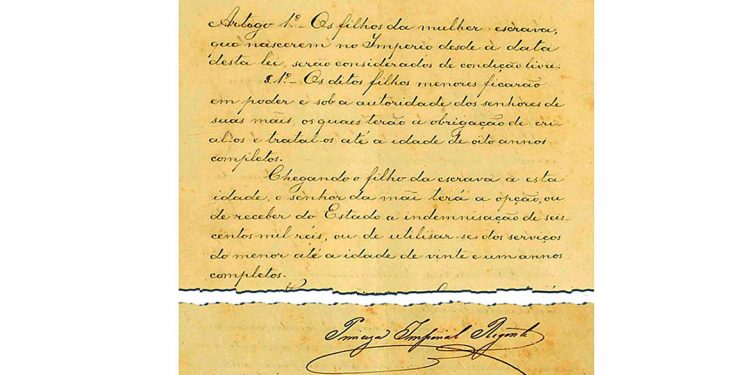 Artogo 1º - Os filhos da mulher escrava,
que nascerem no Imperio desde a data
desta lei, serão considerados de condição livre.
§.1º - Os ditos filhos menores ficarão
em poder e sob a autoridade dos senhores de
suas mãis, os quaes terão a obrigação de cri-
al-os e tratal-os até a idade de oito annos
completos.
Chegando o filho da escrava a esta
idade, o senhor da mãi terá a opção, ou
de receber do Estado a indemnisação de seis-
centos mil réis, ou de utilisar-se dos serviços
do menor até a idade de vinte e um annos
completos.
Princeza Imperial Regente